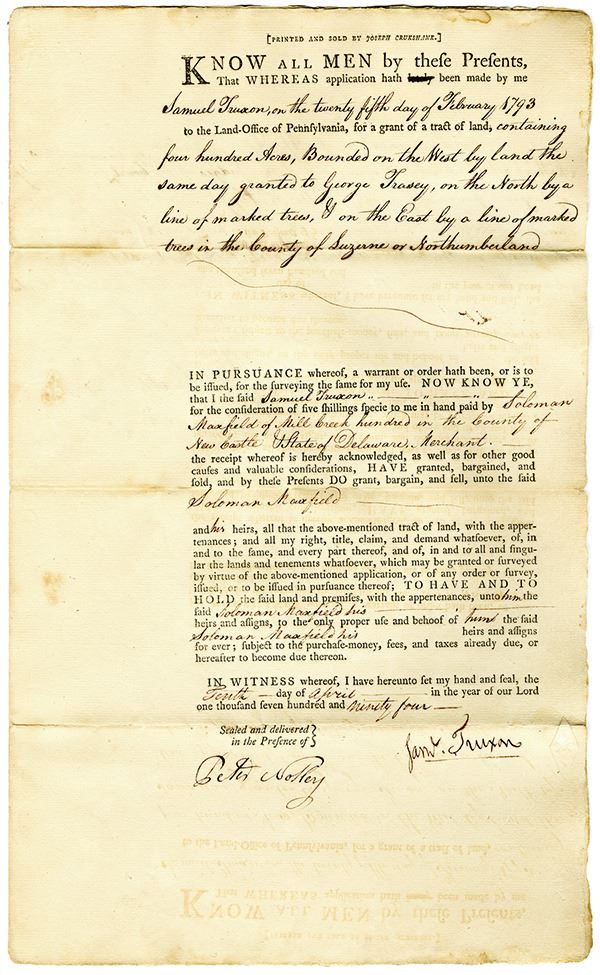 [PRINTED AND SOLD BY JOSEPH CRUKSHANK.]
KNOW ALL MEN by theſe Preſents,
That WHEREAS application hath lately been made by me
Samuel Truxon, on the twenty fifth day of February 1793
to the Land-Office of Pennſylvania, for a grant of a tract of land, containing
four hundred Acres, Bounded on the West by land the
same day granted to George Trasey, on the North by a
line of marked trees, & on the East by a line of marked
trees in the County of Luzerne or Northumberland
IN PURSUANCE whereof, a warrant or order hath been, or is to
be iſſued, for the ſurveying the ſame for my uſe. NOW KNOW YE,
that I the ſaid Samuel Truxon
for the conſideration of five ſhillings ſpecie to me in hand paid by Soloman
Maxfield of Mill Creek hundred in the County of
New Castle & State of Delaware, Merchant.
the receipt whereof is hereby acknowledged, as well as for other good
cauſes and valuable conſiderations, HAVE granted, bargained, and
ſold, and by theſe Preſents DO grant, bargain, and ſell, unto the ſaid
Soloman Maxfield
and his heirs, all that the above-mentioned tract of land, with the apper-
tenances; and all my right, title, claim, and demand whatſoever, of, in
and to the ſame, and every part thereof, and of, in and to all and ſingu-
lar the lands and tenements whatſoever, which may be granted or ſurveyed
by virtue of the above-mentioned application, or of any order or ſurvey,
iſſued, or to be iſſued in purſuance thereof; TO HAVE AND TO
HOLD the ſaid land and premiſes, with the appertenances, unto him the
ſaid Soloman Maxfield his
heirs and aſſigns, to the only proper uſe and behoof of him the ſaid
Soloman Maxfield his heirs and aſſigns
for ever; ſubject to the purchaſe-money, fees, and taxes already due, or
hereafter to become due thereon.
IN WITNESS whereof, I have hereunto ſet my hand and ſeal, the
Tenth day of April in the year of our Lord
one thouſand ſeven hundred and ninety four
Sealed and delivered
in the Preſence of
Saml. Truxon
Peter